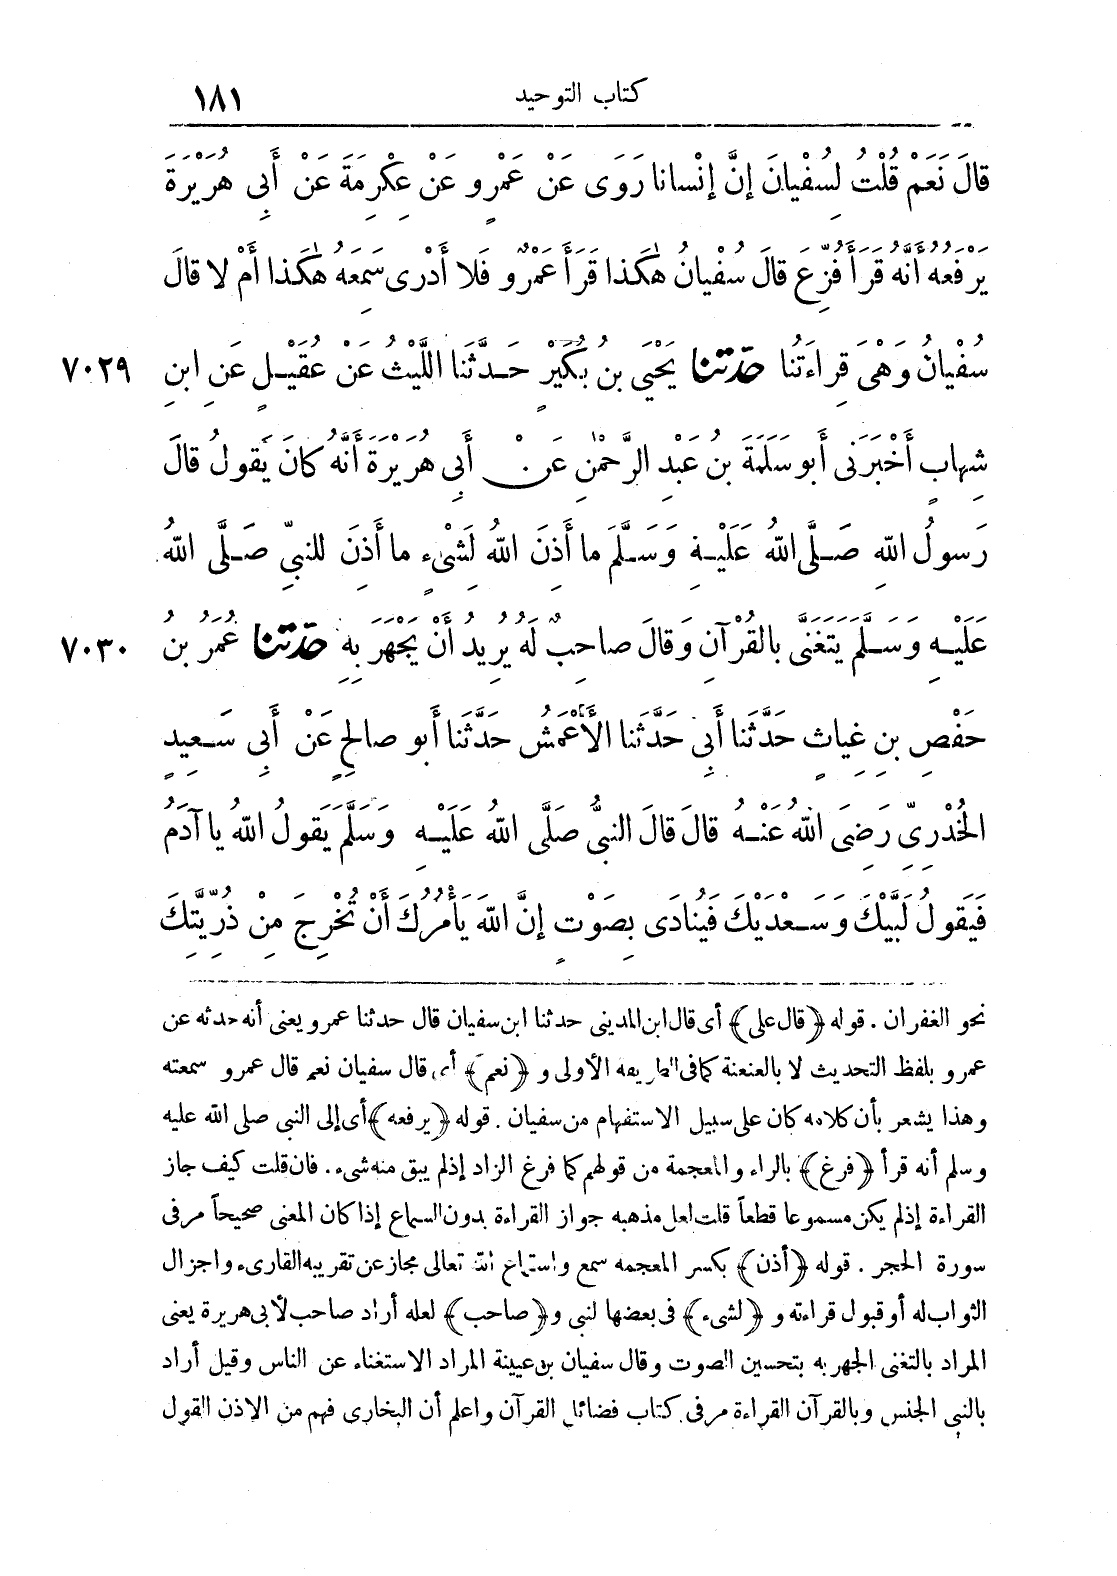 كتاب التوحيد ١٨١
قَالَ نَعَمْ قُلْتُ لِسُفْيَانَ إِنَّ إِنْسَانًا رَوَى عَنْ عَمْرٍو عَنْ عِكْرِمَةَ عَنْ أَبِي هُرَيْرَةَ
يَرْفَعُهُ أَنَّهُ قَرَأَ فُزِّعَ قَالَ سُفْيَانُ هٰكَذَا قَرَأَ عَمْرٌو فَلَا أَدْرِى سَمِعَهُ هٰكَذَا أَمْ لَا قَالَ
سُفْيَانُ وَهْىَ قِرَاءَتُنَا حَدَّثَنَا يَحْيَى بْنُ بُكَيْرٍ حَدَّثَنَا اللَّيْثُ عَنْ عُقَيْلٍ عَنِ ابْنِ ٧٠٢٩
شِهَابٍ أَخْبَرَنِى أَبُو سَلَمَةَ بْنُ عَبْدِ الرَّحْمٰنِ عَنْ أَبِى هُرَيْرَةَ أَنَّهُ كَانَ يَقُولُ قَالَ
رَسُولُ اللهِ صَلَّى اللهُ عَلَيْهِ وَسَلَّمَ مَا أَذِنَ اللهُ لِشَىْءٍ مَا أَذِنَ لِلنَّبِىِّ صَلَّى اللهُ
عَلَيْهِ وَسَلَّمَ يَتَغَنَّى بِالْقُرْآنِ وَقَالَ صَاحِبٌ لَهُ يُرِيدُ أَنْ يَجْهَرَ بِهِ حَدَّثَنَا عُمَرُ بْنُ ٧٠٣٠
حَفْصِ بْنِ غِيَاثٍ حَدَّثَنَا أَبِى حَدَّثَنَا الْأَعْمَشُ حَدَّثَنَا أَبُو صَالِحٍ عَنْ أَبِى سَعِيدٍ
الْخُدْرِىِّ رَضِىَ اللهُ عَنْهُ قَالَ قَالَ النَّبِىُّ صَلَّى اللهُ عَلَيْهِ وَسَلَّمَ يَقُولُ اللهُ يَا آدَمُ
فَيَقُولُ لَبَّيْكَ وَسَعْدَيْكَ فَيُنَادَى بِصَوْتٍ إِنَّ اللهَ يَأْمُرُكَ أَنْ تُخْرِجَ مِنْ ذُرِّيَّتِكَ
نحو الغفران . قوله ﴿قال على﴾ أى قال ابن المدينى حدثنا ابن سفيان قال حدثنا عمرو يعنى أنه حدثه عن
عمرو بلفظ التحديث لا بالعنعنة كما فى الطريقه الأولى و ﴿نعم﴾ أى قال سفيان نعم قال عمرو سمعته
وهذا يشعر بأن كلامه كان على سبيل الاستفهام من سفيان . قوله ﴿يرفعه﴾ أى إلى النبى صلى الله عليه
وسلم أنه قرأ ﴿فرغ﴾ بالراء والمعجمة من قولهم كما فرغ الزاد إذ لم يبق منه شىء . فان قلت كيف جاز
القراءة إذ لم يكن مسموعا قطعاً قلت لعل مذهبه جواز القراءة بدون السماع إذا كان المعنى صحيحاً مر فى
سورة الحجر . قوله ﴿أذن﴾ بكسر المعجمه سمع واستماع الله تعالى مجاز عن تقريبه القارىء واجزال
الثواب له أو قبول قراءته و ﴿لشىء﴾ فى بعضها لنبى و ﴿صاحب﴾ لعله أراد صاحب لأبى هريرة يعنى
المراد بالتغنى الجهر به بتحسين الصوت وقال سفيان بن عيينة المراد الاستغناء عن الناس وقيل أراد
بالنبى الجنس وبالقرآن القراءة مر فى كتاب فضائل القرآن واعلم أن البخارى فهم من الاذن القول